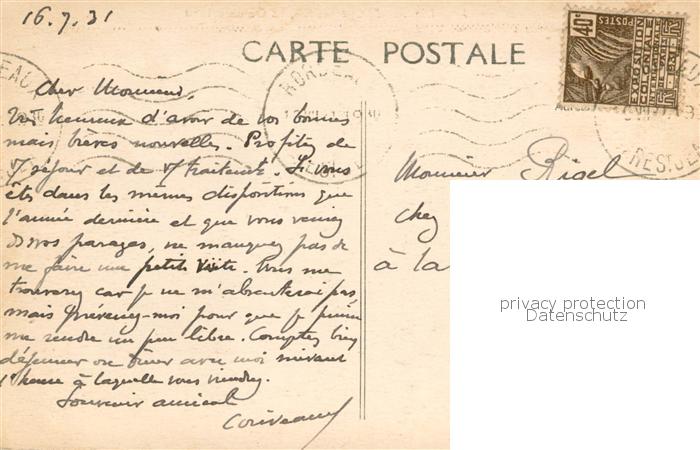 16.7.31
CARTE POSTALE
40c
POSTES
EXPOSITION
COLONIALE
INTERNATIONALE
PARIS
BORDEAUX
Cher Monsieur,
Très heureux d'avoir de vos bonnes
mais brèves nouvelles. Profitez de
v/ séjour et de v/ traitement. Si vous
êtes dans les mêmes dispositions que
l'année dernière et que vous veniez
ds nos parages, ne manquez pas de
me faire une petite visite. Vous me
trouverez car je ne m'absenterai pas,
mais prévenez-moi pour que je puisse
me rendre un peu libre. Comptez bien
déjeuner ou dîner avec moi suivant
l'heure à laquelle vous viendrez.
Souvenir amical
Monsieur Rigel
chez
à la
privacy protection
Datenschutz